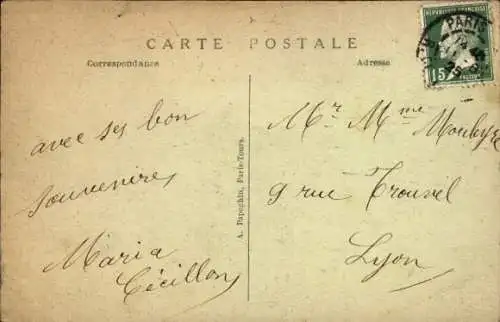 CARTE POSTALE
Correspondance
Adresse
RÉPUBLIQUE FRANÇAISE
PARIS
15
avec ses bon
souvenires
Maria
Cécillon
A. Papeghin, Paris-Tours.
Mr Mme
9 rue
Lyon